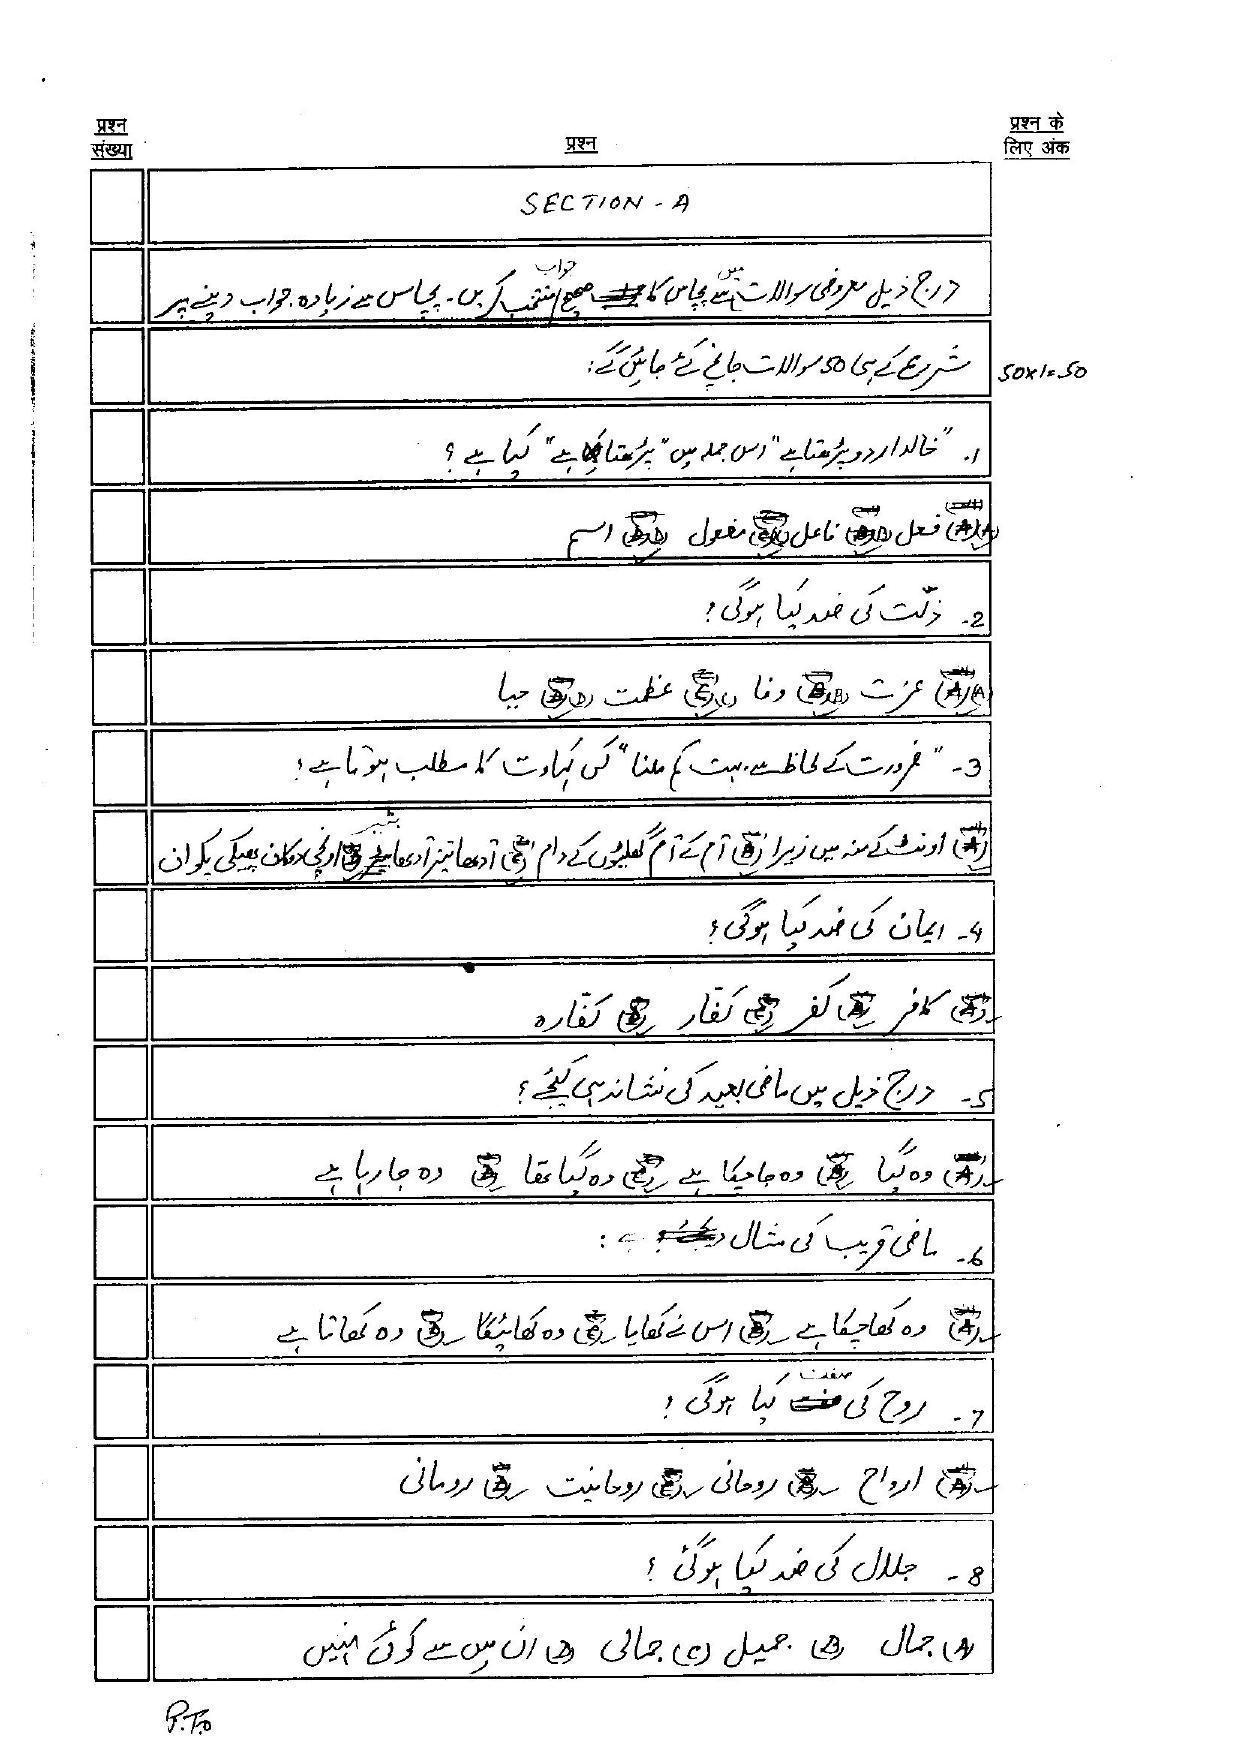 प्रश्न संख्या
प्रश्न
प्रश्न के लिए अंक
SECTION - A
درج ذیل معروضی سوالات میں سے پچاس کا صحیح جواب منتخب کریں۔ پچاس سے زیادہ جواب دینے پر
شروع کے ہی 50 سوالات جانچے جائیں گے:
50x1=50
1. "خالد اردو پڑھتا ہے" اس جملہ میں "پڑھتا ہے" کیا ہے؟
(A) فعل (B) فاعل (C) مفعول (D) اسم
2. ذلّت کی ضد کیا ہوگی؟
(A) عزت (B) وفا (C) عظمت (D) حیا
3- "ضرورت کے لحاظ سے بہت کم ملنا" کس کہاوت کا مطلب ہوتا ہے؟
(A) اونٹ کے منہ میں زیرا (B) آم کے آم گٹھلیوں کے دام (C) آدھا تیتر آدھا بٹیر (D) اونچی دوکان پھیکی پکوان
4- ایمان کی ضد کیا ہوگی؟
(A) کافر (B) کفر (C) کفّار (D) کفّارہ
5- درج ذیل میں ماضی بعید کی نشاندہی کیجئے؟
(A) وہ گیا (B) وہ جا چکا ہے (C) وہ گیا تھا (D) وہ جا رہا ہے
6- ماضی قریب کی مثال ہے:
(A) وہ کھا چکا ہے (B) اس نے کھایا (C) وہ کھائیگا (D) وہ کھاتا ہے
7- روح کی صفت کیا ہوگی؟
(A) ارواح (B) روحانی (C) روحانیت (D) رومانی
8- جلال کی ضد کیا ہوگی؟
(A) جمال (B) جمیل (C) جمالی (D) ان میں سے کوئی نہیں
P.T.O